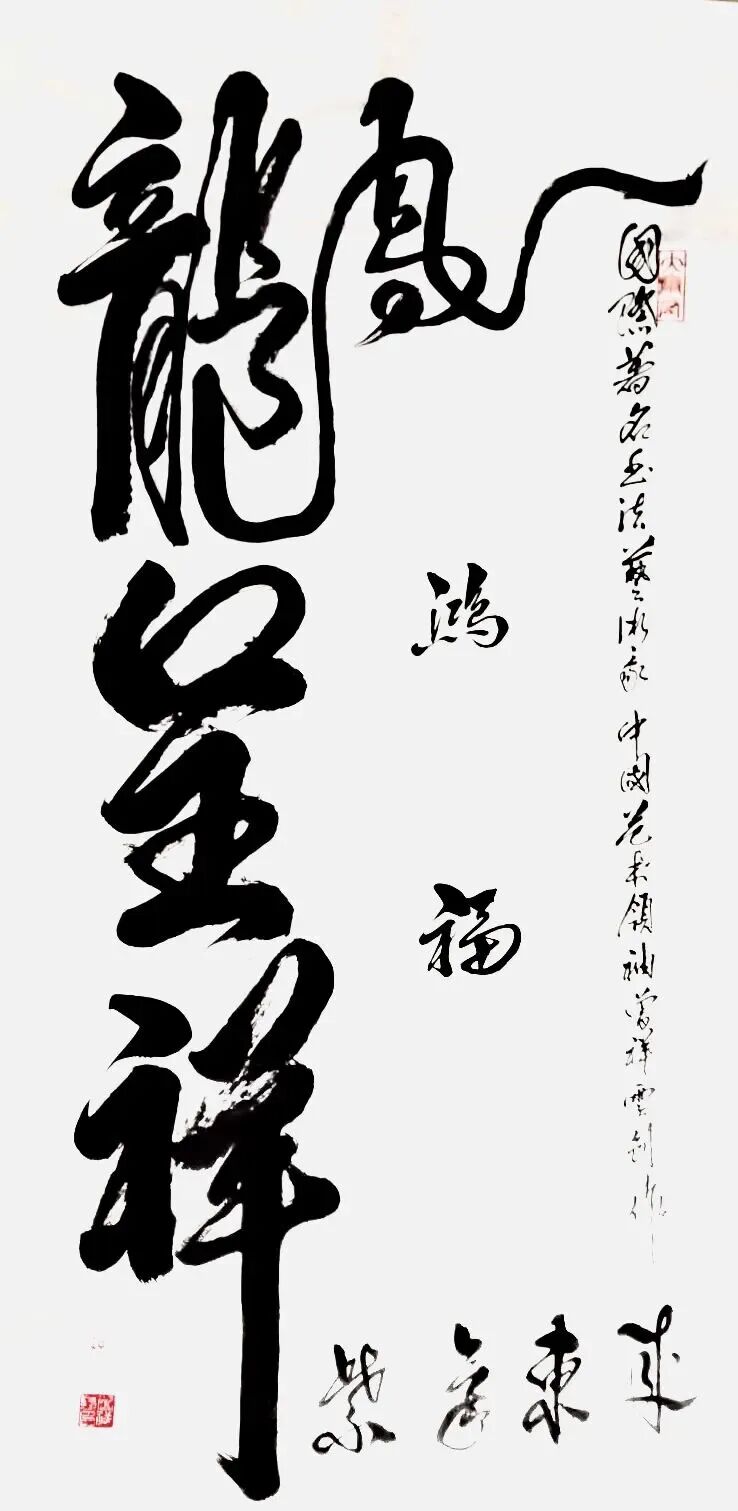 龍鳳呈祥
鴻福
紫氣東來
國際著名書法藝術家 中國領袖曾祥雲創作